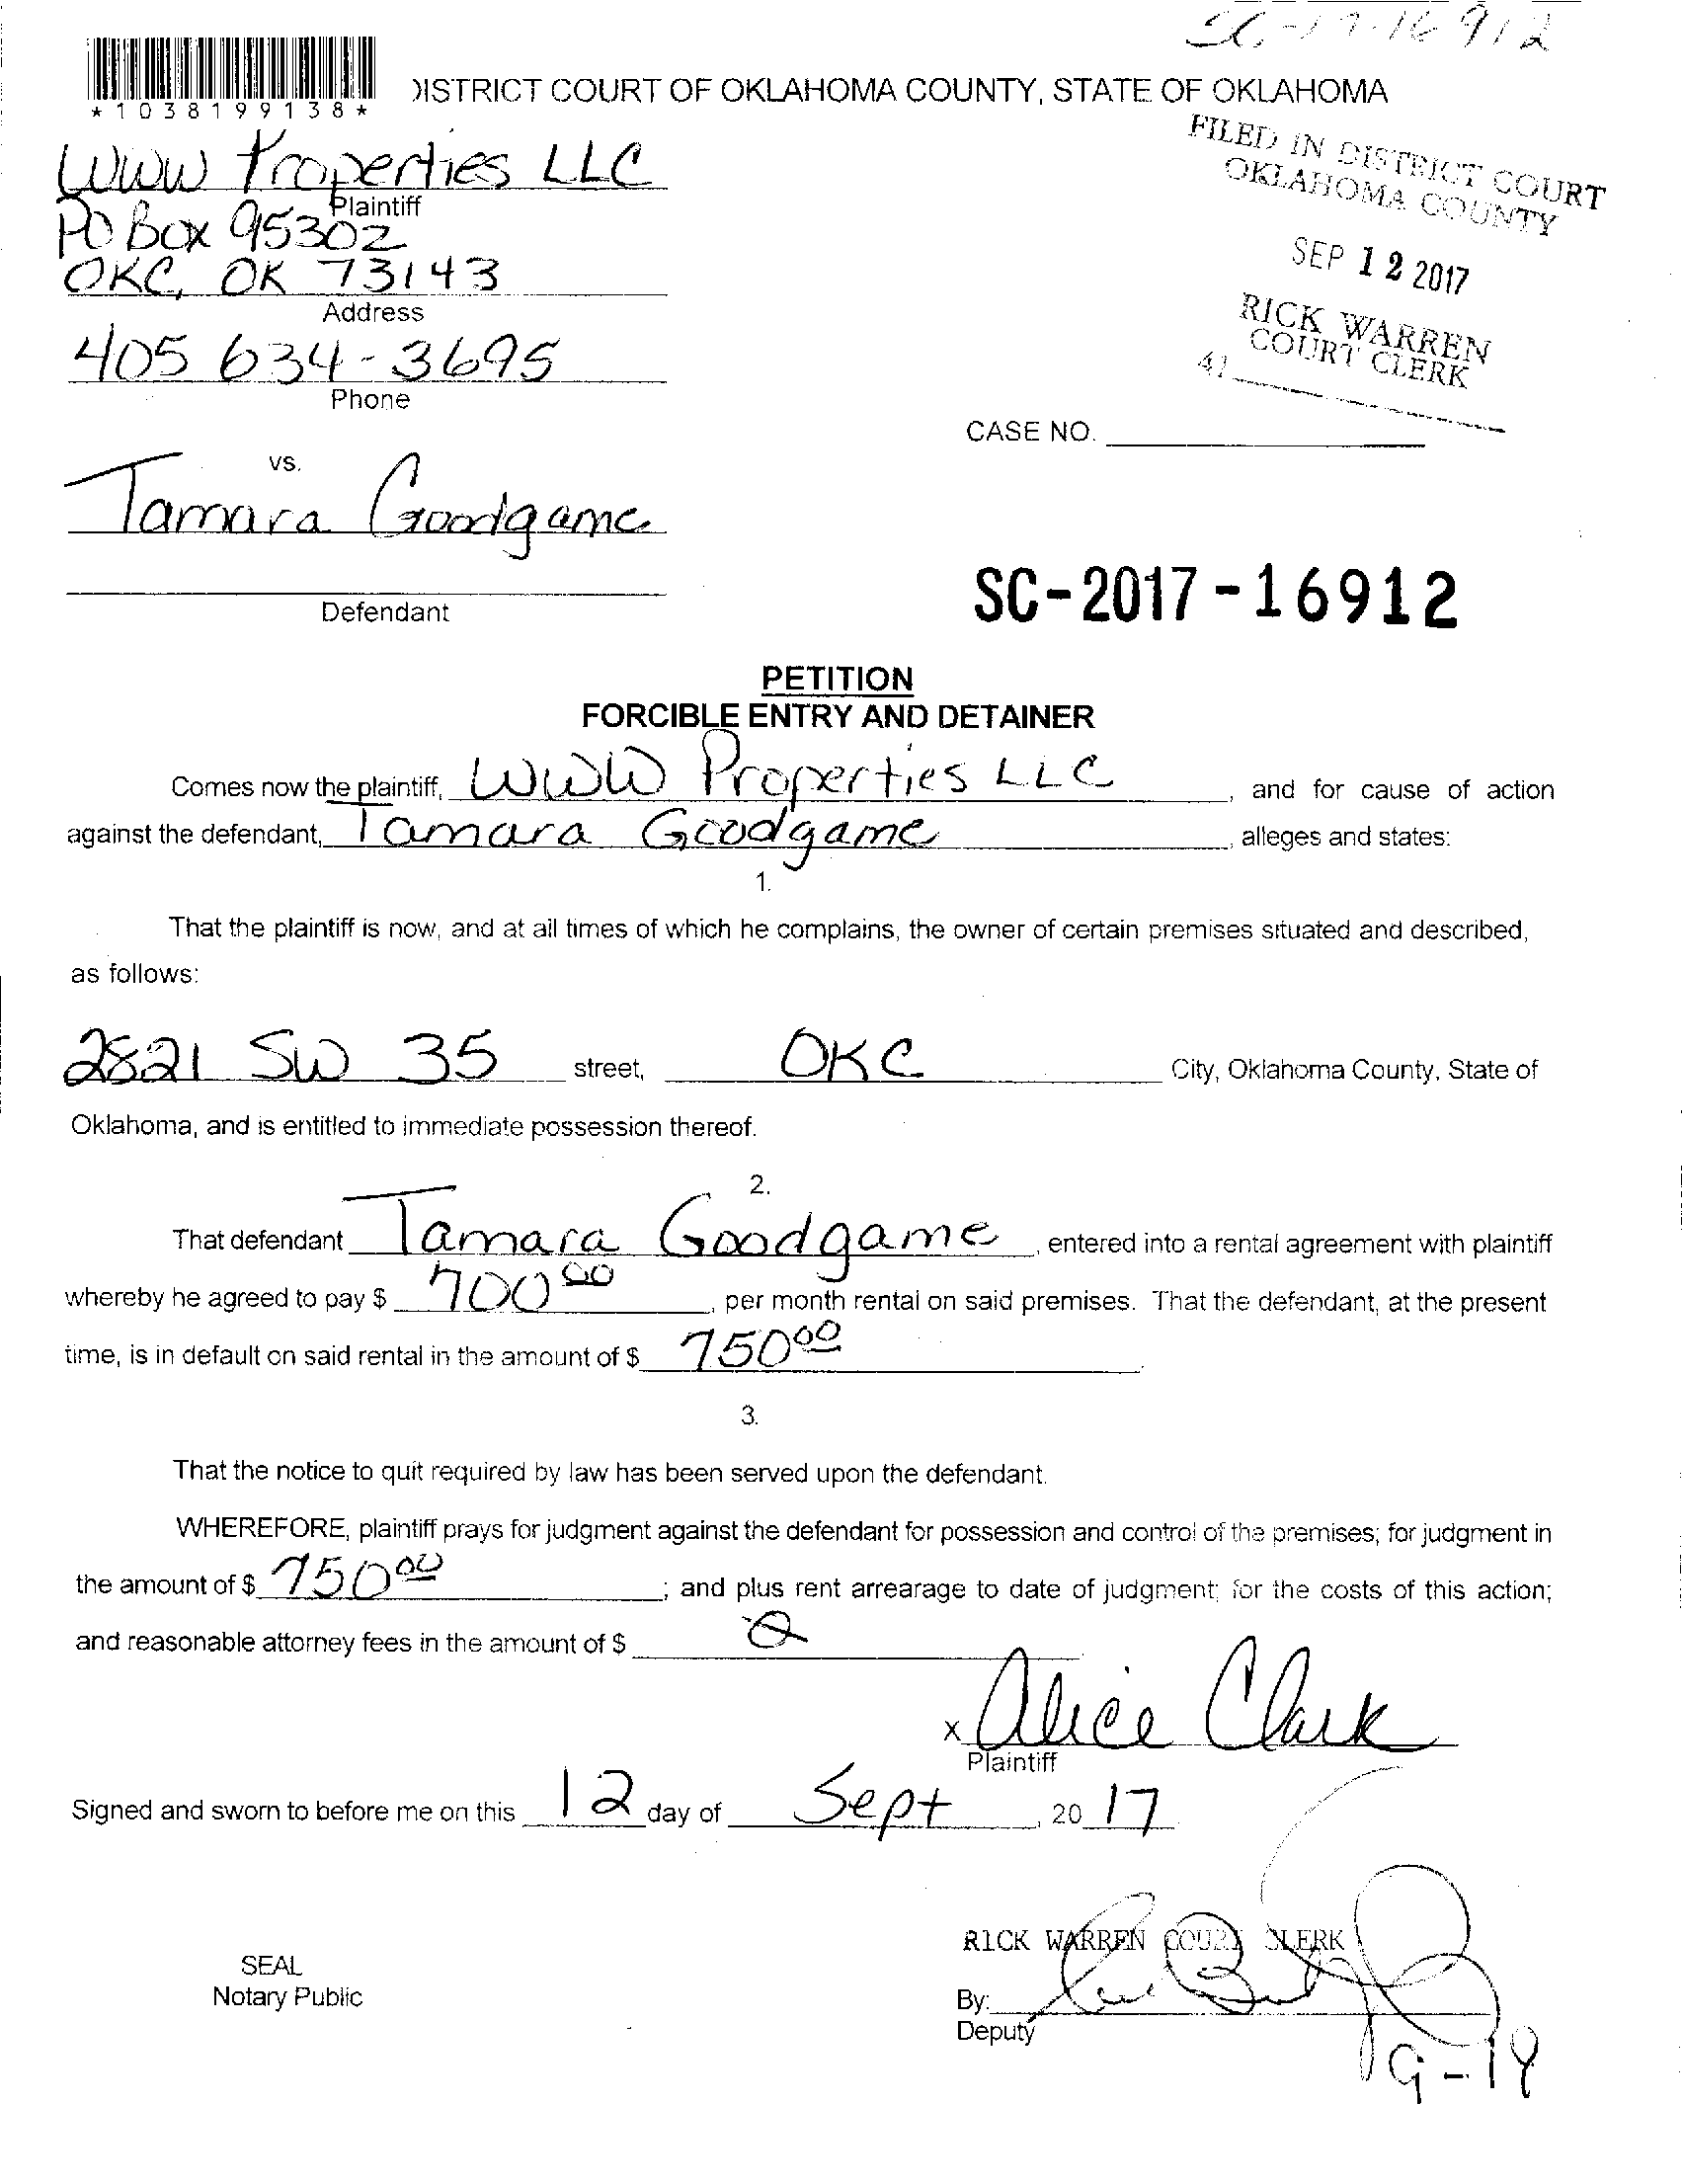 SC-17-16912
*1038199138*
DISTRICT COURT OF OKLAHOMA COUNTY, STATE OF OKLAHOMA
FILED IN DISTRICT COURT
OKLAHOMA COUNTY
SEP 12 2017
RICK WARREN
COURT CLERK
41
WWW Properties LLC
Plaintiff
PO Box 95302
OKC, OK 73143
Address
405 634-3695
Phone
CASE NO.
vs.
Tamara Goodgame
Defendant
SC-2017-16912
PETITION
FORCIBLE ENTRY AND DETAINER
Comes now the plaintiff, WWW Properties LLC, and for cause of action
against the defendant, Tamara Goodgame, alleges and states:
1.
That the plaintiff is now, and at all times of which he complains, the owner of certain premises situated and described,
as follows:
2821 SW 35 street, OKC City, Oklahoma County, State of
Oklahoma, and is entitled to immediate possession thereof.
2.
That defendant Tamara Goodgame, entered into a rental agreement with plaintiff
whereby he agreed to pay $ 700.00, per month rental on said premises. That the defendant, at the present
time, is in default on said rental in the amount of $ 750.00.
3.
That the notice to quit required by law has been served upon the defendant.
WHEREFORE, plaintiff prays for judgment against the defendant for possession and control of the premises; for judgment in
the amount of $ 750.00; and plus rent arrearage to date of judgment; for the costs of this action;
and reasonable attorney fees in the amount of $
x Alice Clark
Plaintiff
Signed and sworn to before me on this 12 day of Sept, 2017
RICK WARREN COURT CLERK
SEAL
Notary Public
By:
Deputy
9-19